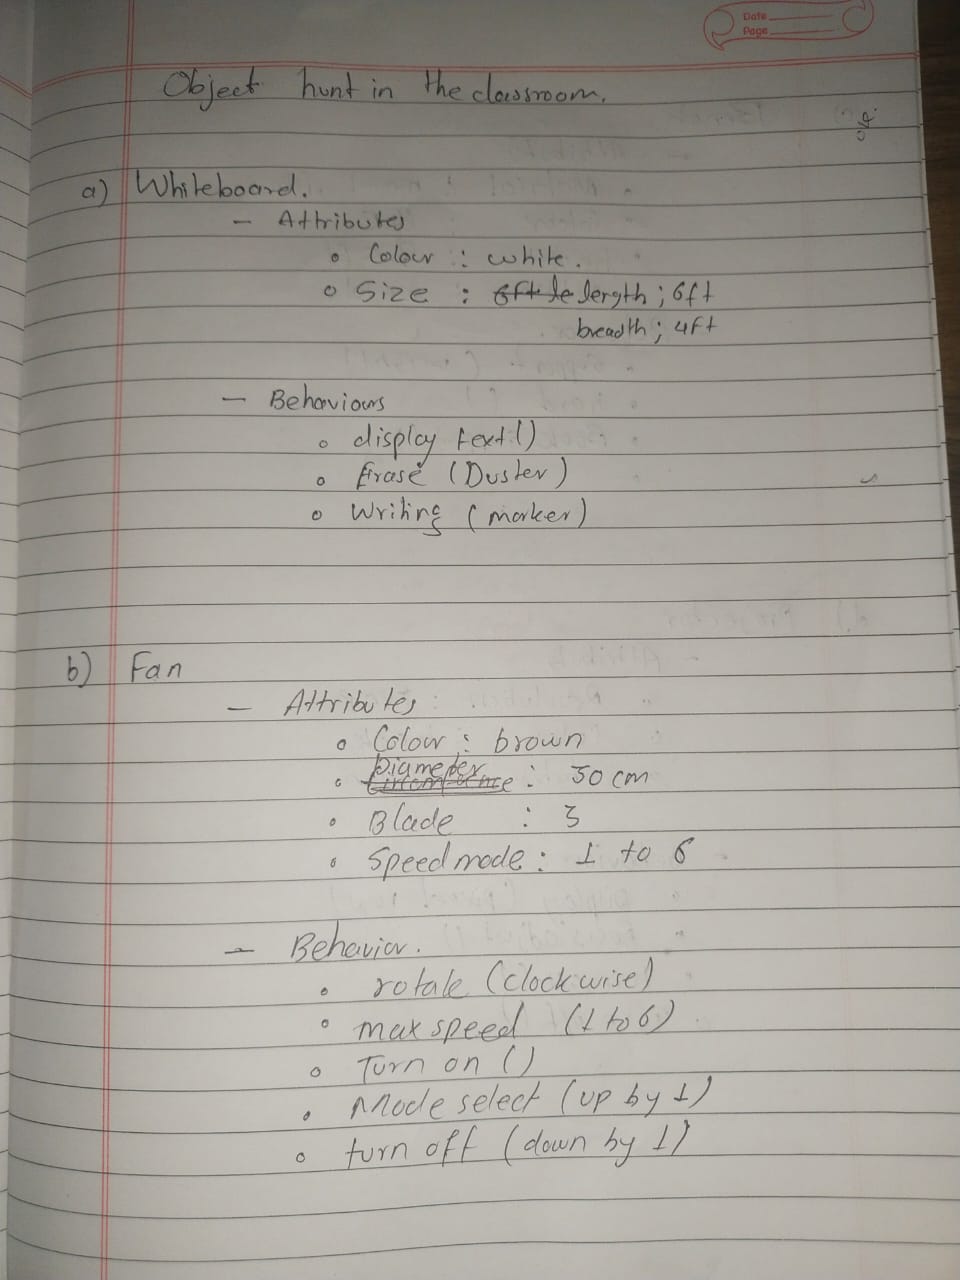 Date
Page
Object hunt in the classroom.
a) Whiteboard.
- Attributes
Colour : white.
Size : 6ft le length ; 6ft
breadth ; 4ft
- Behaviours
display text()
Erase (Duster)
Writing (marker)
b) Fan
- Attributes
Colour : brown
Diameter : 50 cm
Blade : 3
Speed mode : 1 to 6
- Behavior.
rotate (clockwise)
max speed (1 to 6)
Turn on ()
Mode select (up by 1)
turn off (down by 1)